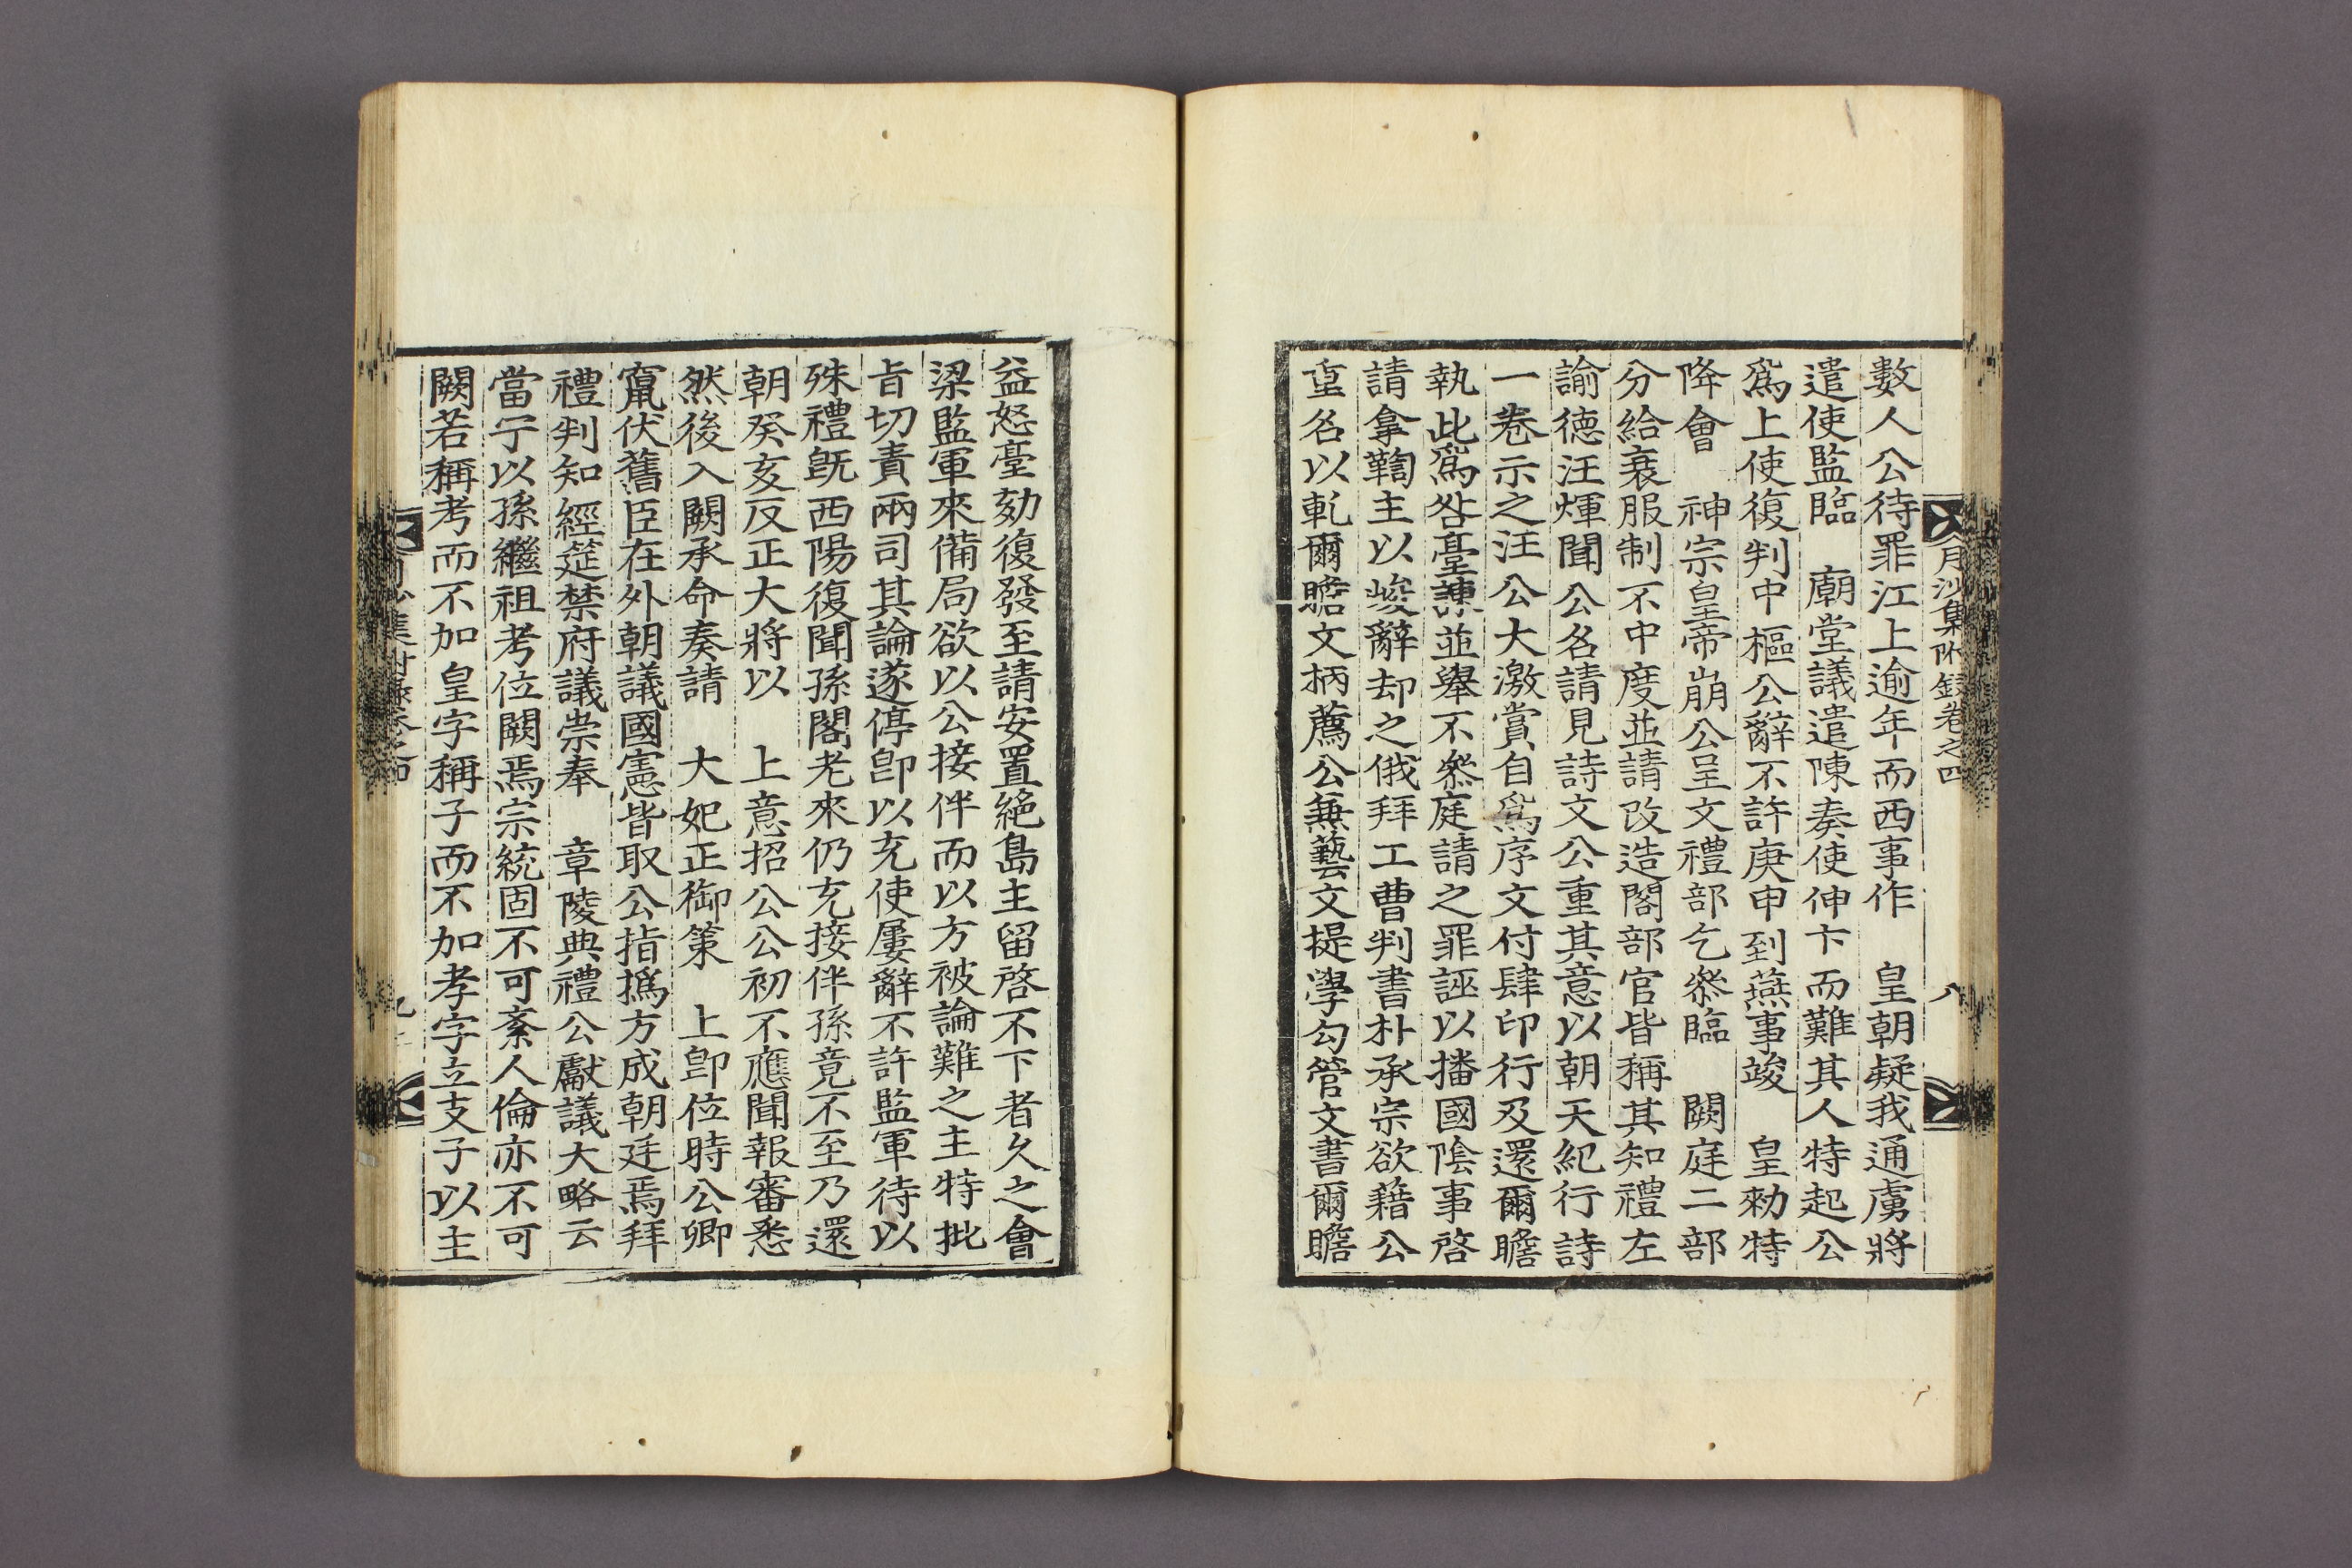 月沙集附錄卷之四
八
數人公待罪江上逾年而西事作　皇朝疑我通虜將
遣使監臨　廟堂議遣陳奏使伸卞而難其人特起公
爲上使復判中樞公辭不許庚申到燕事竣　皇勑特
降會　神宗皇帝崩公呈文禮部乞叅臨　闕庭二部
分給衰服制不中度並請改造閣部官皆稱其知禮左
諭德汪煇聞公名請見詩文公重其意以朝天紀行詩
一卷示之汪公大激賞自爲序文付肆印行及還爾瞻
執此爲咎臺諫並舉不叅庭請之罪誣以播國陰事啓
請拿鞫主以峻辭却之俄拜工曹判書朴承宗欲藉公
重名以軋爾瞻文柄薦公兼藝文提學勾管文書爾瞻
益怒臺劾復發至請安置絶島主留啓不下者久之會
梁監軍來備局欲以公接伴而以方被論難之主特批
旨切責兩司其論遂停卽以充使屢辭不許監軍待以
殊禮旣西陽復聞孫閣老來仍充接伴孫竟不至乃還
朝癸亥反正大將以　上意招公公初不應聞報審悉
然後入闕承命奏請　大妃正御策　上卽位時公卿
竄伏舊臣在外朝議國憲皆取公指撝方成朝廷焉拜
禮判知經筵禁府議崇奉　章陵典禮公獻議大略云
當宁以孫繼祖考位闕焉宗統固不可紊人倫亦不可
闕若稱考而不加皇字稱子而不加孝字立支子以主
九